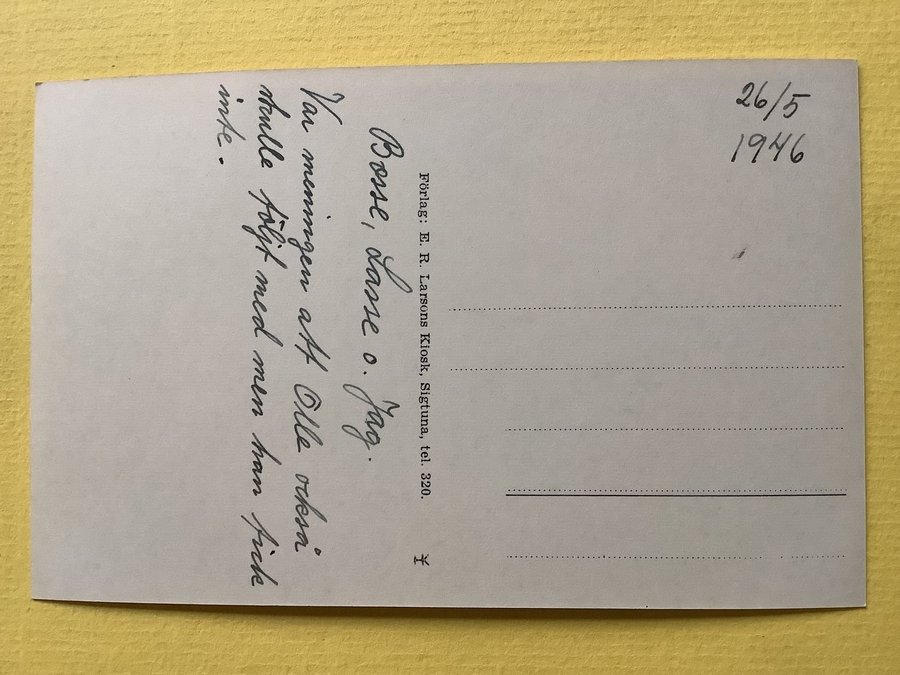 26/5
1946
Bosse, Lasse o. Jag.
Var meningen att Olle också
skulle följt med men han fick
inte.
Förlag: E. R. Larsons Kiosk, Sigtuna, tel. 320.